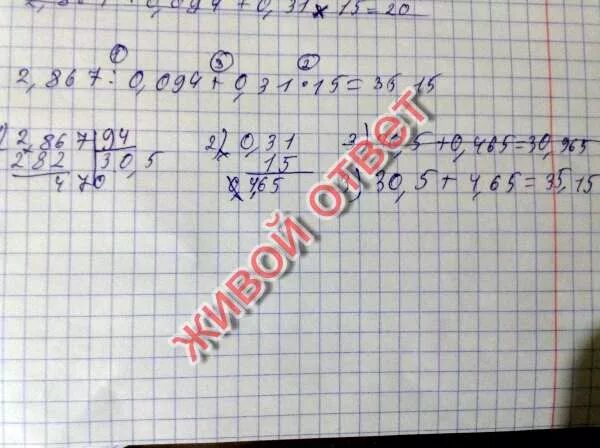 2,867 : 0,094 + 0,31 × 15 = 20
① ③ ②
2,867 : 0,094 + 0,31 · 15 = 35,15
1) 2,867 | 94
282 | 30,5
470
2) 0,31
15
4,65
3) 30,5 + 0,465 = 30,965
3) 30,5 + 4,65 = 35,15
ЖИВОЙ ОТВЕТ